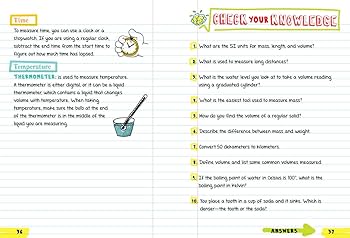 Time
To measure time, you can use a clock or a
stopwatch. If you are using a regular clock,
subtract the end time from the start time to
figure out how much time has elapsed.
Temperature
THERMOMETER is used to measure temperature.
A thermometer is either digital, or it can be a liquid
thermometer, which contains a liquid that changes
volume with temperature. When taking
temperature, make sure the bulb at the end
of the thermometer is in the middle of the
liquid you are measuring.
36
CHECK YOUR KNOWLEDGE
1. What are the SI units for mass, length, and volume?
2. What is used to measure long distances?
3. What is the water level you look at to take a volume reading
using a graduated cylinder?
4. What is the easiest tool used to measure mass?
5. How do you find the volume of a regular solid?
6. Describe the difference between mass and weight.
7. Convert 50 dekameters to kilometers.
8. Define volume and list some common volumes measured.
9. If the boiling point of water in Celsius is 100°, what is the
boiling point in Kelvin?
10. You place a tooth in a cup of soda and it sinks. Which is
denser—the tooth or the soda?
ANSWERS
37